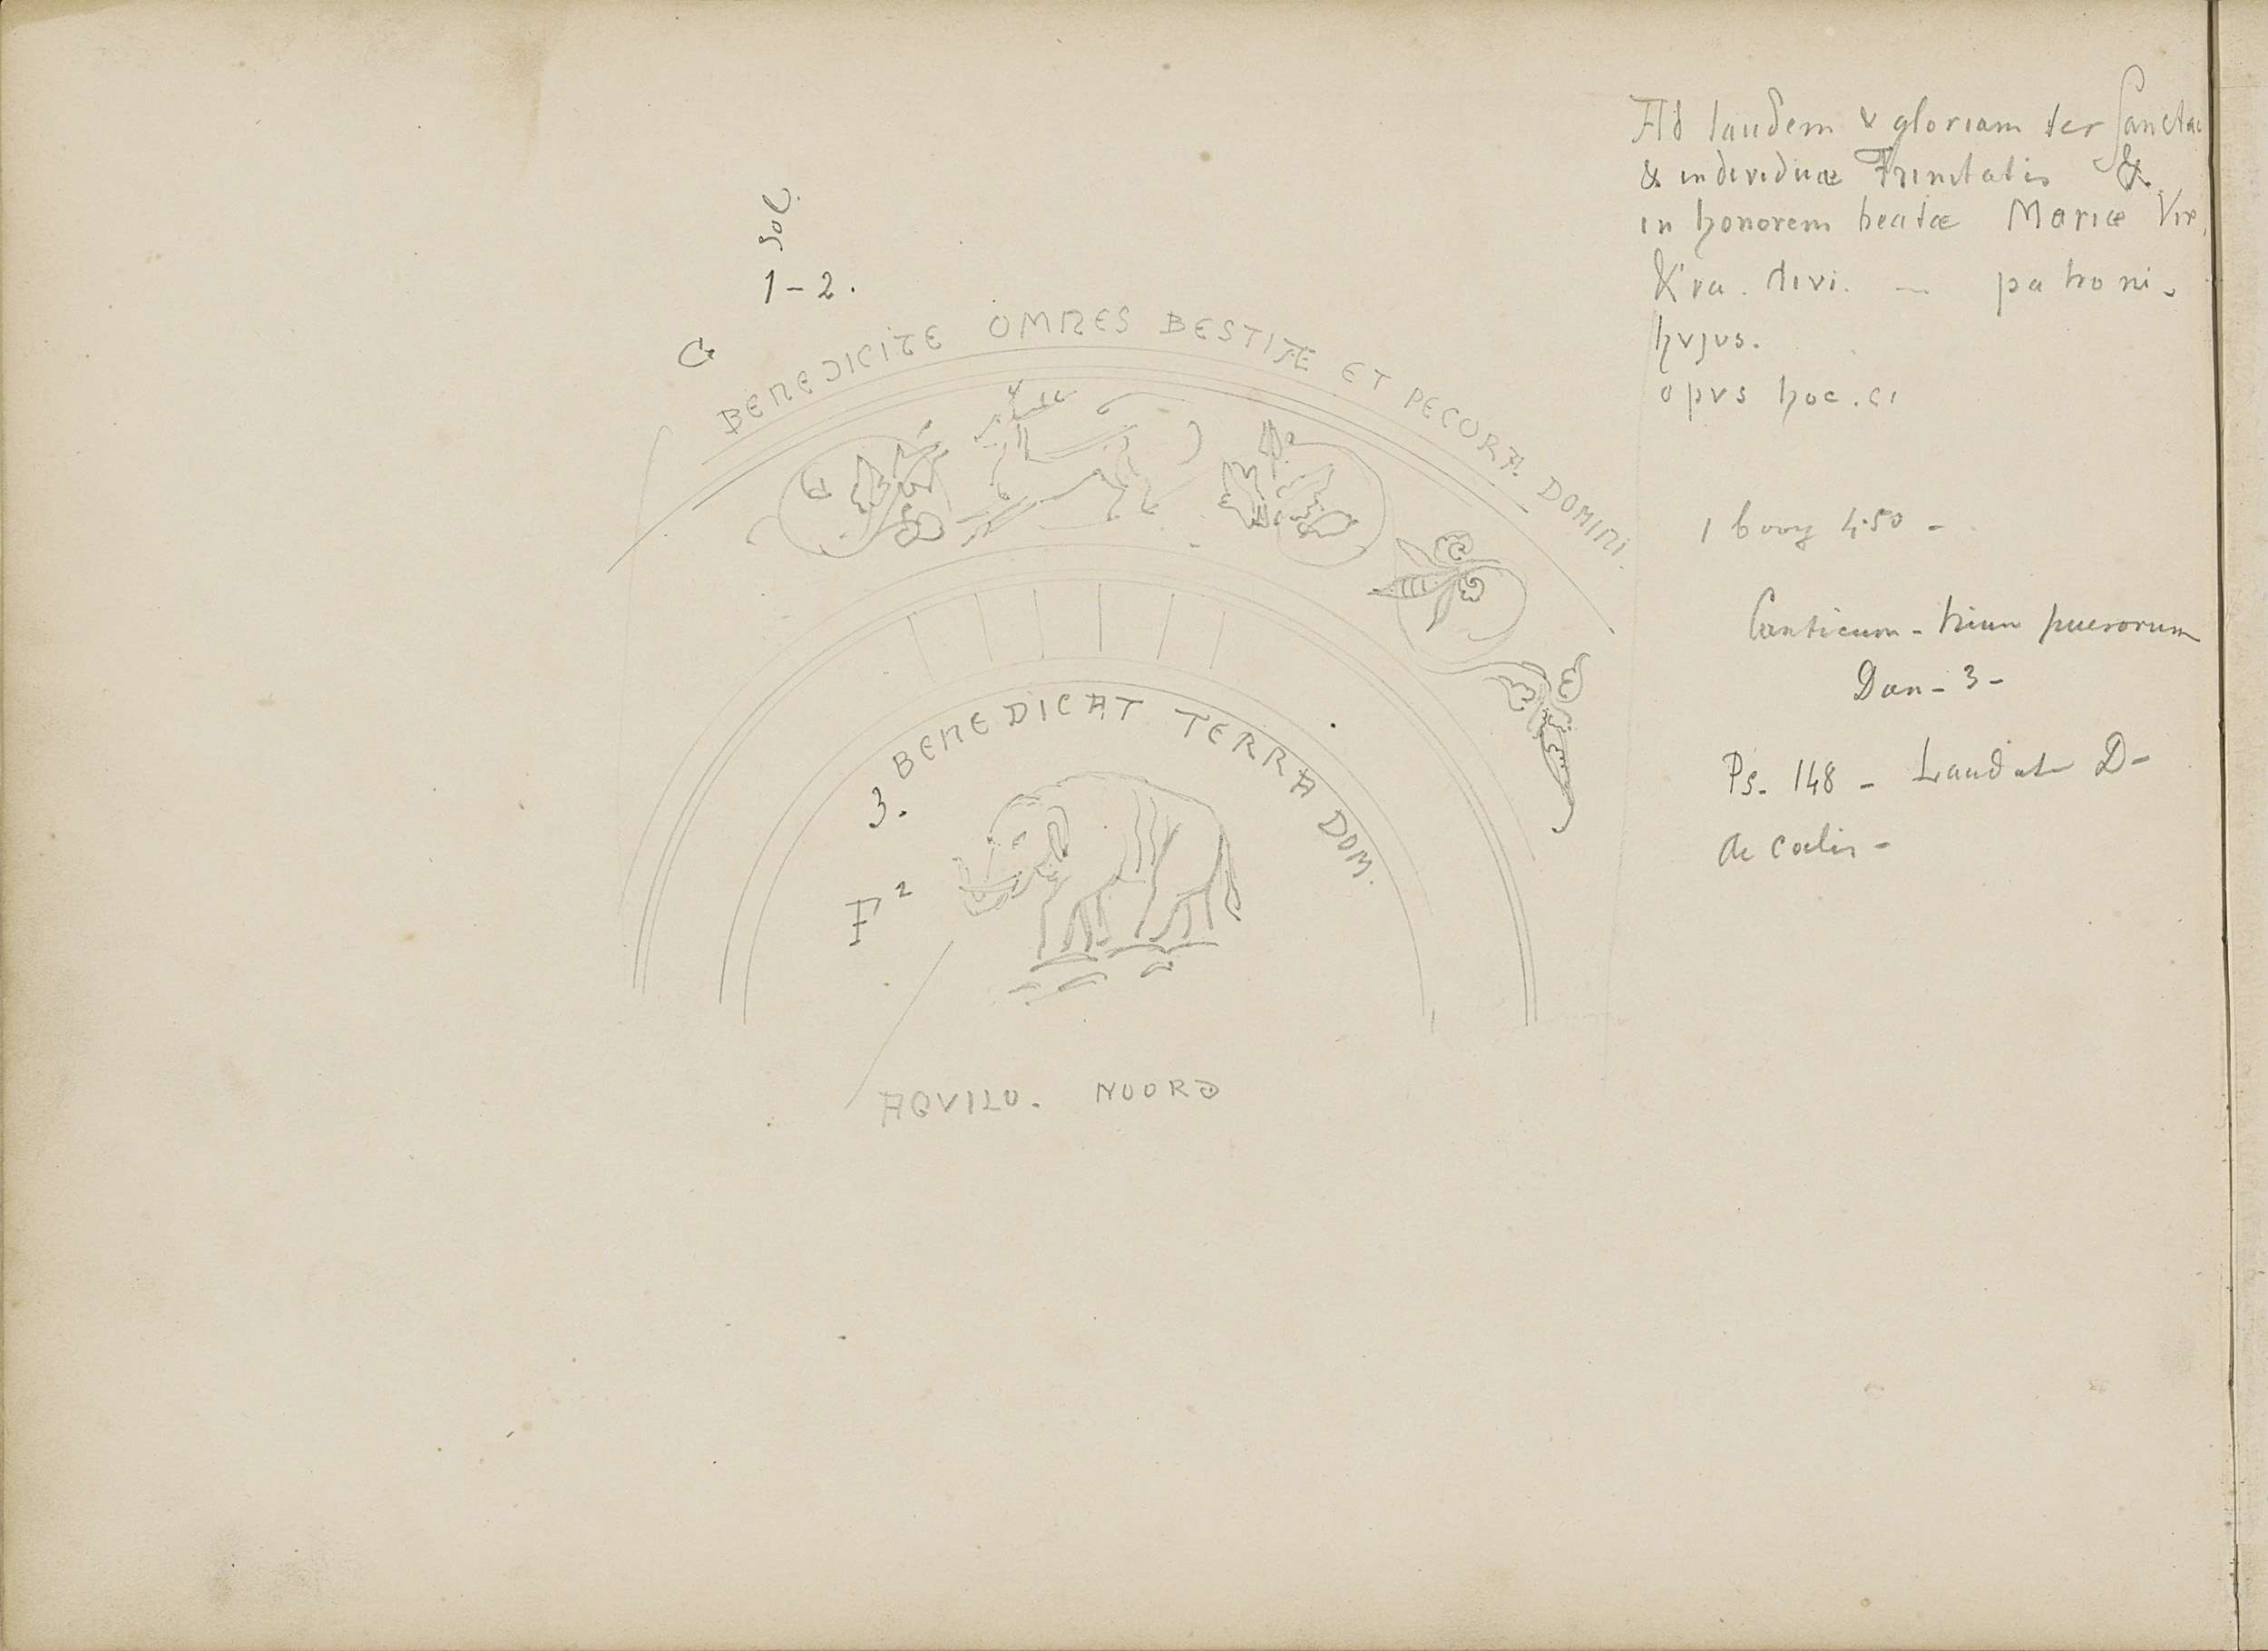 Sol.
1-2.
C
BENEDICITE OMNES BESTIÆ ET PECORA DOMINI.
3. BENEDICAT TERRA DOM.
F²
AQVILO. NOORD
Ad laudem & gloriam ter Sanctae
& individuæ Trinitatis &
in honorem beatæ Mariæ Vir.
divi. — patroni.
hujus.
opus hoc.
1 boog 4.50 -
Canticum - trium puerorum
Dan - 3 -
Ps. 148 - Laudate D -
de coelis -